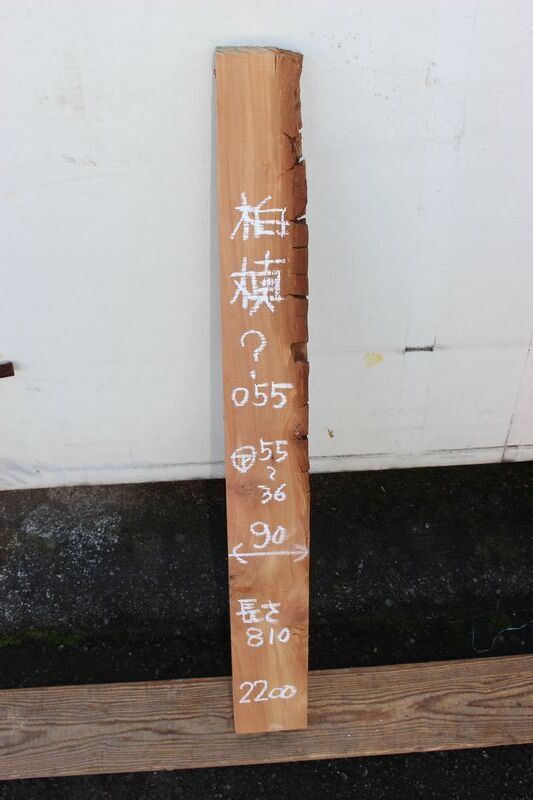 柏
槙
?
055
㋐55
~
36
90
長さ
810
2200